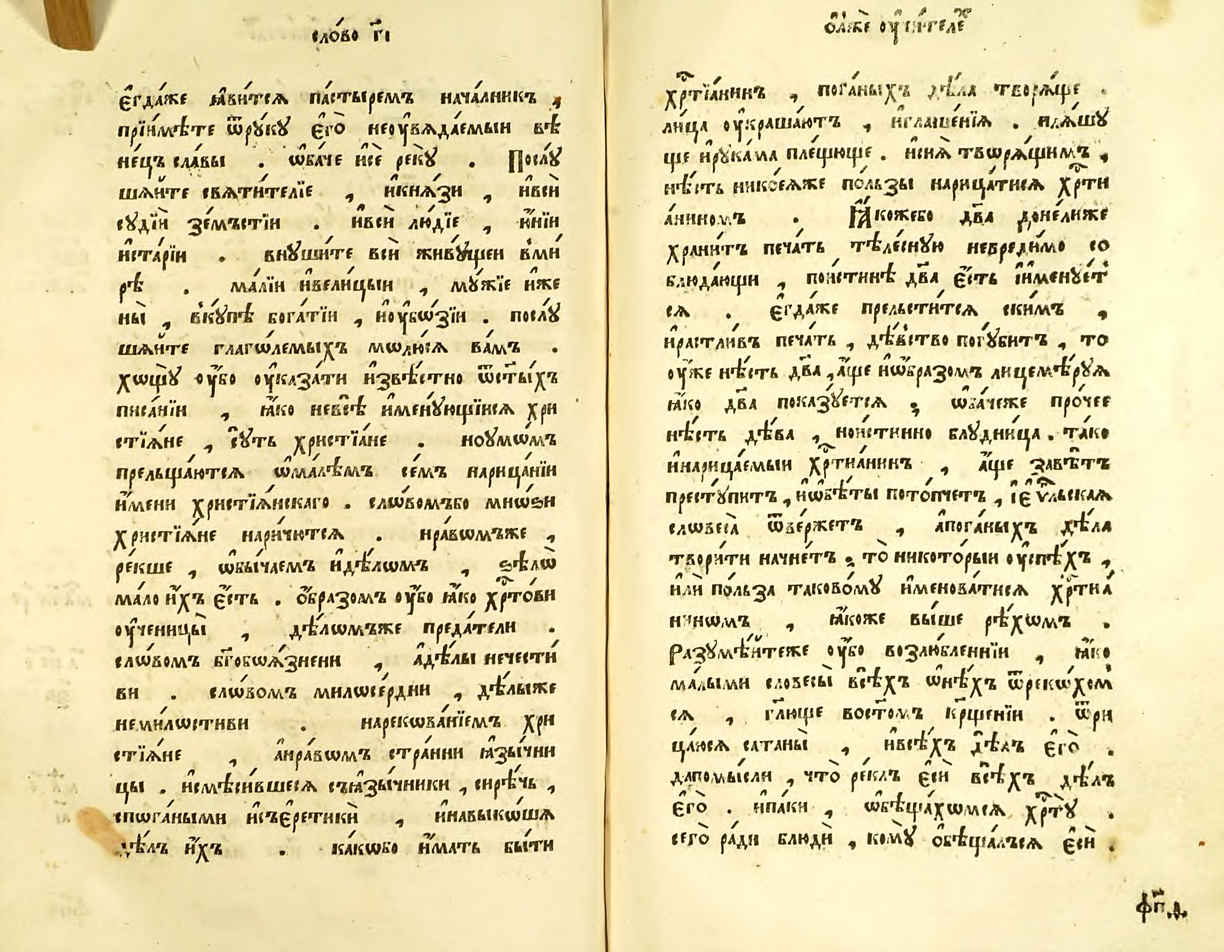 сло́во г҃і
є҆гда́же ꙗ҆ви́тсѧ па́стыремъ нача́лникъ ,
прїи́мѣте ѿрꙋкꙋ є҆го̀ неоувѧда́емыи вѣ
не́цъ сла́вы . ѡ҆ба́че и҆сѐ рекꙋ̀ . Послꙋ
ша́йте свѧти́телїе , и҆кнѧ́зи , и҆всѝ
сꙋдїѝ зе́мьстїи . и҆всѝ лю́дїе , ю҆нїи
и҆ста́рїи . внꙋши́те всѝ живꙋ́щеи вми
рѣ̀ . ма́лїи и҆вели́цыи , мꙋ́жїе и҆же
ны̀ , вкꙋ́пѣ бога́тїи , и҆оубѡ́зїи . послꙋ
ша́йте глаго́лемыхъ молю́сѧ ва́мъ .
хощꙋ̀ оу҆бо оу҆каза́ти и҆звѣ́стно ѿст҃ы́хъ
писа́нїи , ꙗ҆́ко невсѣ̀ и҆менꙋ́ющїисѧ хри
стїѧ́не , сꙋть христїа́не . ноумѡ́мъ
прельща́ютсѧ ѡ҆ма́лѣмъ се́мъ нарица́нїи
и҆́мени христїѧ́нскаго . сло́вомъбо мно́ѕи
христїѧ́не нарѝчютсѧ . нра́вомъже ,
ре́кше , ѡ҆бы́чаемъ и҆дѣ́ломъ , ѕѣлѡ̀
мало и҆́хъ є҆́сть . о҆́бразомъ оу҆́бо ꙗ҆́ко хр҇то́ви
оу҆ченицы̀ , дѣ́ломъже преда́тели .
сло́вомъ бг҃обоѧ́знени , а҆дѣ́лы нечести́
ви . сло́вомъ милосе́рдни , дѣ́лыже
неми́лостиви . нарекова́нїемъ хри
стїѧ́не , а҆нра́вомъ стра́нни ꙗ҆зы́чни
цы . и҆смѣси́вшесѧ съꙗзы́чники , си́рѣчь ,
спога́ными и҆съєретикѝ , и҆навыко́ша
дѣ́лъ и҆́хъ . ка́кобо и҆́мать бы́ти
хр҇тїа́нинъ , пога́ныхъ дѣ́ла творѧ́ще .
лица оу҆краша́ютъ , и҆глаше́нїѧ . и҆плѧ́шꙋ
ще и҆рꙋка́ма пле́щюще . и҆сиѧ̀ творѧ́щимъ ,
нѣ́сть нико́еѧже по́льзы нарица́тисѧ хр҇ти
а́ниномъ . Ꙗ҆́кожебо дв҃а до́нелиже
храни́тъ печа́ть тѣле́снꙋю невреди́мо со
блюда́ющи , пои́стинѣ дв҃а є҆́сть и҆именꙋ́ет
сѧ . є҆гда́же прельсти́тсѧ ски́мъ ,
и҆растли́въ печа́ть , дѣ́вство погꙋ́битъ , то
оу҆́же нѣ́сть дв҃а , а҆́ще и҆ѡ҆́бразомъ лицемѣ́рꙋѧ
ꙗ҆́ко дв҃а показꙋ́етсѧ ; ѡ҆ба́чеже про́чее
нѣ́сть дѣ́ва , нои́стинно блꙋдни́ца . та́ко
и҆нарица́емыи хр҇тиа́нинъ , а҆́ще завѣ́тъ
престꙋ́питъ , и҆ѡ҆бѣ́ты пото́пчетъ , і҆єѵⷢ҇льскаѧ
словеса̀ ѿве́ржетъ , а҆пога́ныхъ дѣ́ла
твори́ти начне́тъ , то̀ никото́рыи оу҆спѣ́хъ ,
и҆лѝ по́льза таково́мꙋ и҆менова́тисѧ хр҇тиа́
ниномъ , ꙗ҆́коже вы́ше рѣ́хомъ .
Разꙋмѣ́йтеже оу҆́бо возлю́бленнїи , ꙗ҆́ко
ма́лыми словесы̀ всѣ́хъ ѡ҆нѣ́хъ ѿреко́хом
сѧ , гл҃юще восто́мъ кр҃ще́нїи . ѿри
ца́юсѧ сатаны̀ , и҆всѣ́хъ дѣ́лъ є҆го̀ .
дапомы́сли , что̀ ре́клъ є҆сѝ всѣ́хъ дѣ́лъ
є҆го̀ . и҆па́ки , ѡ҆бѣща́хомсѧ хр҇тꙋ̀ .
сего̀ ра́ди блюдѝ , комꙋ̀ о҆бѣща́лъсѧ є҆сѝ .